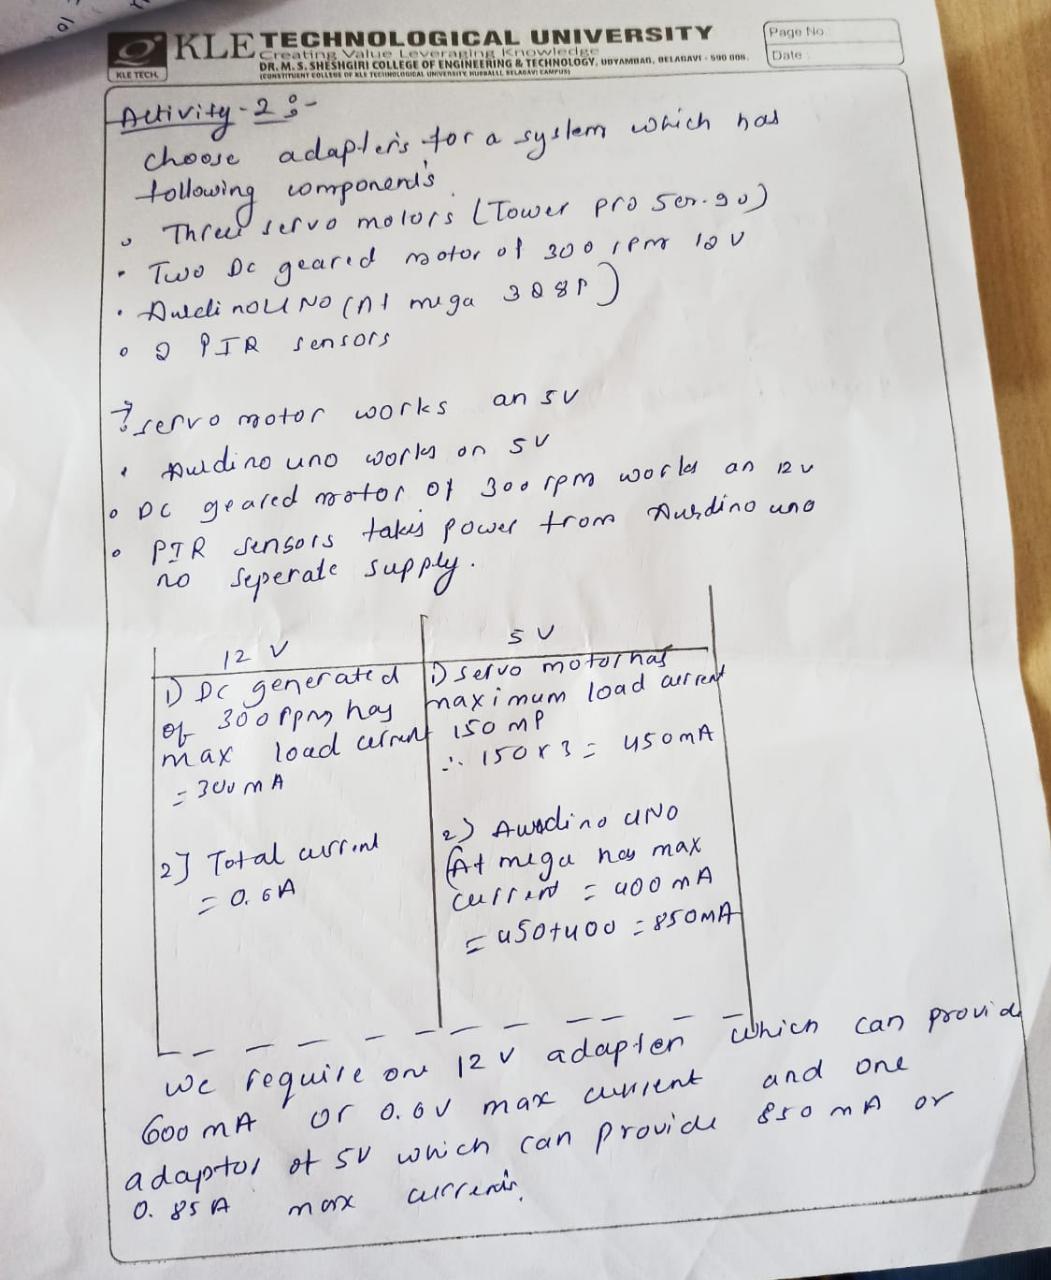 KLE TECH.
KLE TECHNOLOGICAL UNIVERSITY
Creating Value Leveraging Knowledge
DR. M. S. SHESHGIRI COLLEGE OF ENGINEERING & TECHNOLOGY, UDYAMBAG, BELAGAVI - 590 008.
(CONSTITUENT COLLEGE OF KLE TECHNOLOGICAL UNIVERSITY HUBBALLI, BELAGAVI CAMPUS)
Page No.
Date :
Activity-2 :-
choose adapters for a system which has
following components
Three servo motors (Tower pro ser-90)
Two DC geared motor of 300 rpm 12 V
Aurdino UNO (At mega 328P)
2 PIR sensors
servo motor works an 5V
Aurdino uno works on 5V
DC geared motor of 300 rpm works an 12 v
PIR sensors takes power from Aurdino uno
no seperate supply.
12 V
5 V
1) DC generated
of 300 rpm has
max load current
= 300 mA
2] Total current
= 0.6A
1) servo motor has
maximum load current
150 mP
∴ 150 x 3 = 450mA
2) Aurdino UNO
(At mega has max
current = 400 mA
= 450+400 = 850mA
we require one 12 v adapter which can provide
600 mA or 0.6V max current and one
adaptor of 5V which can provide 850 mA or
0.85A max currents.